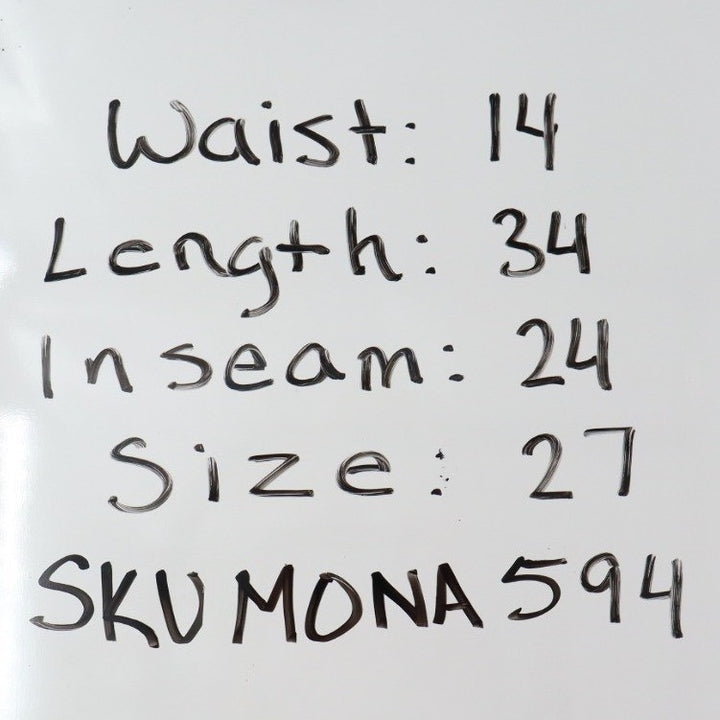 Waist: 14
Length: 34
Inseam: 24
Size: 27
SKU MONA 594